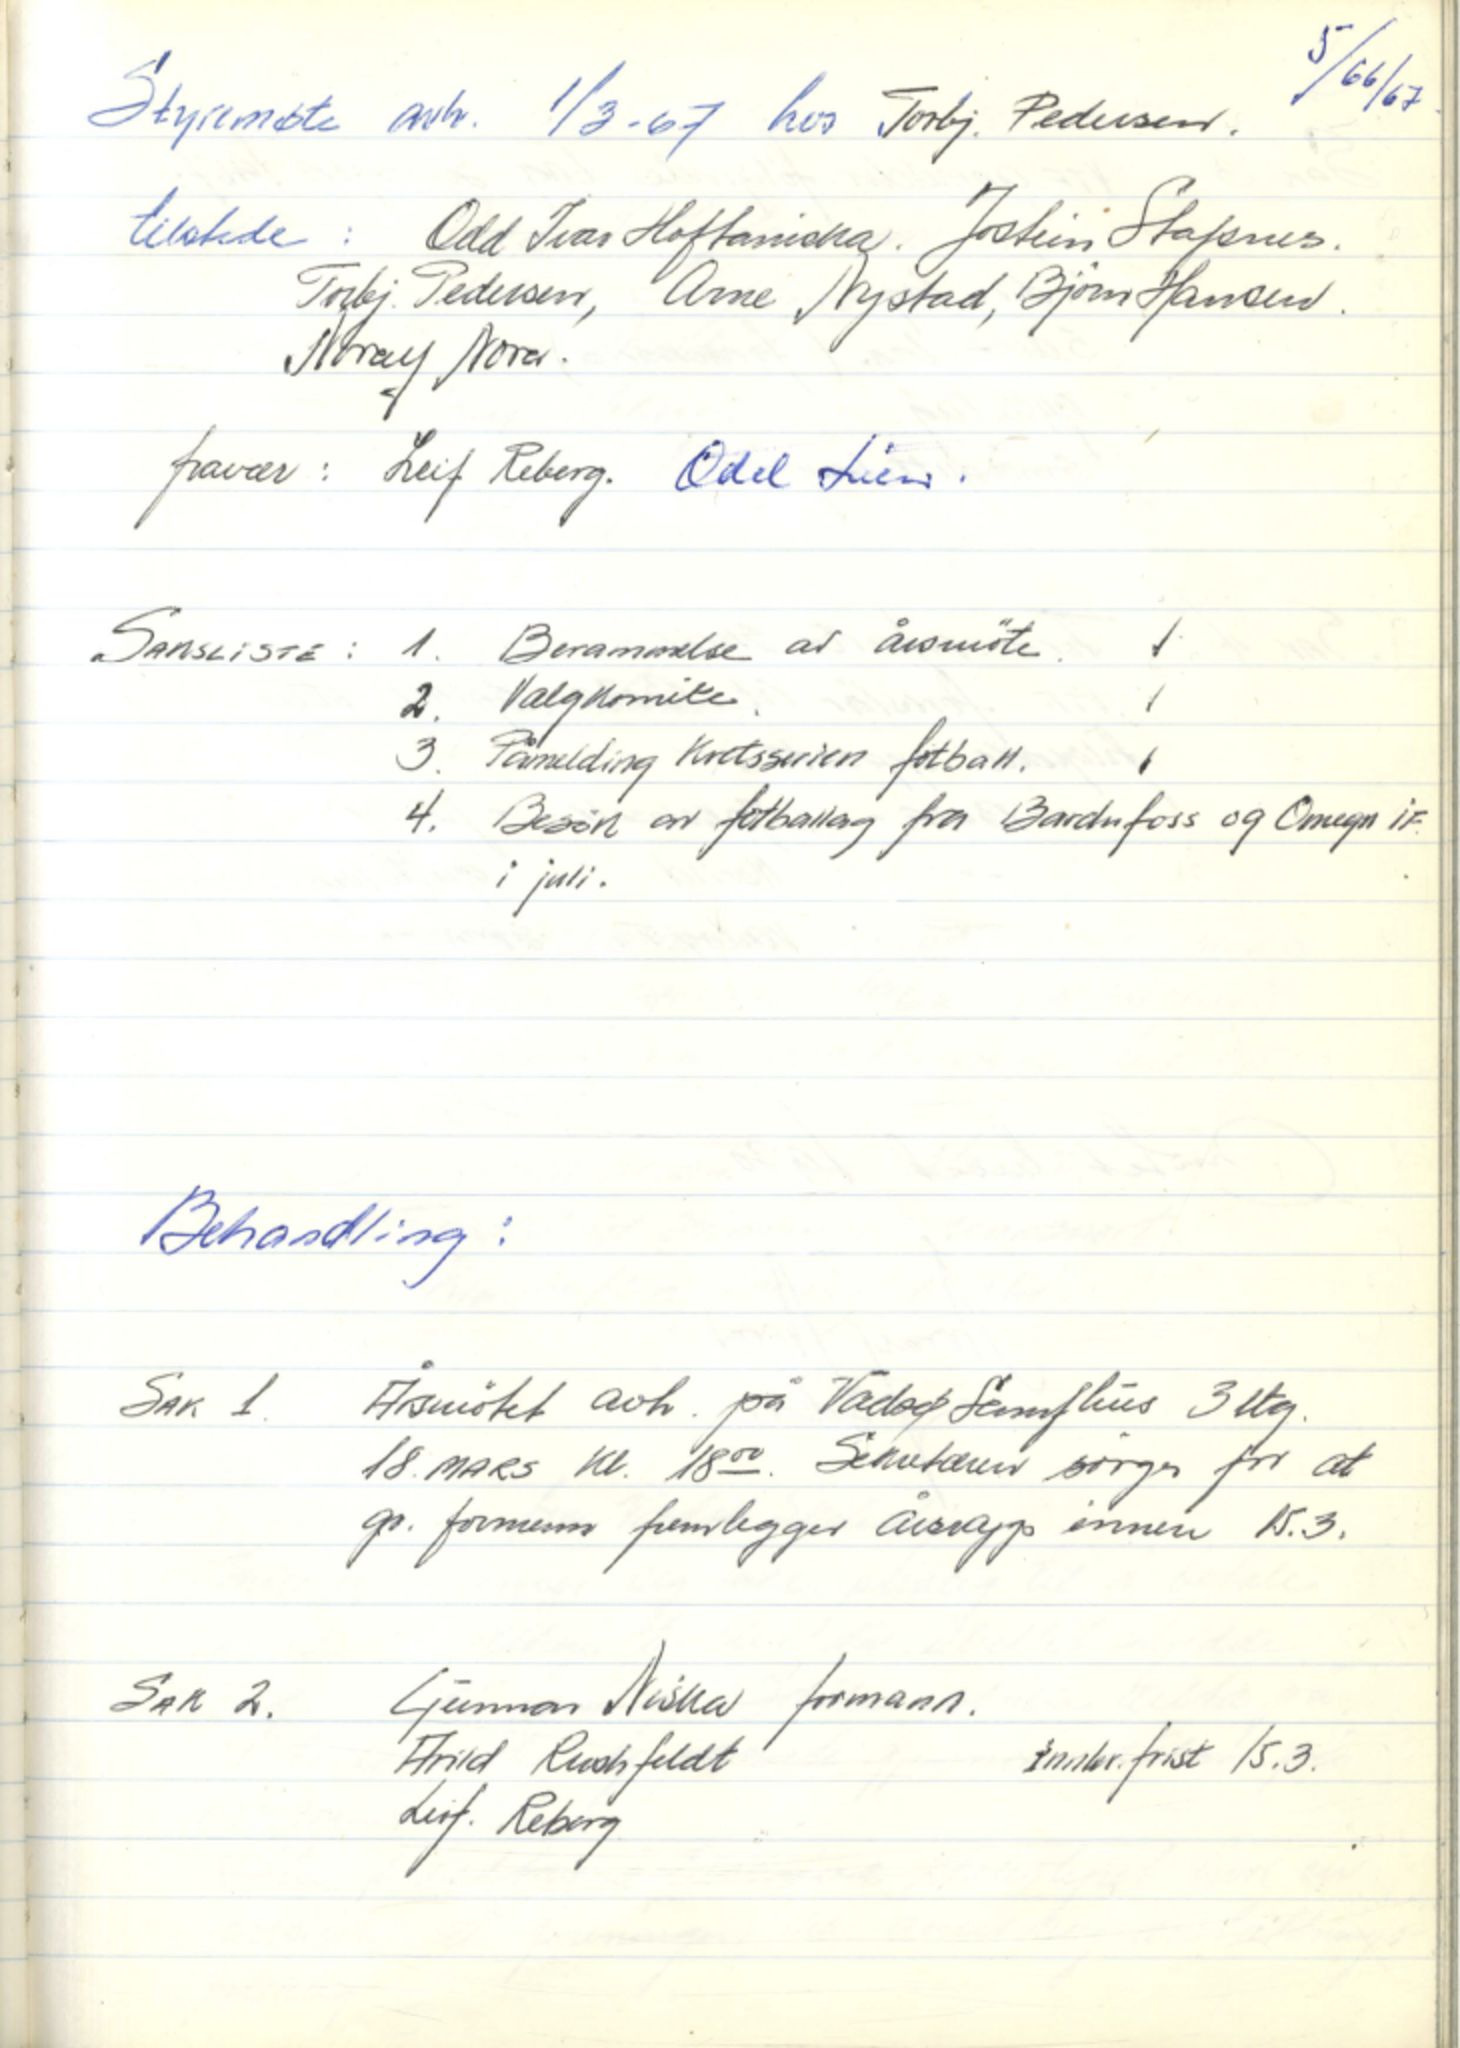 5/66/67
Styremøte avh. 1/3-67 hos Torbj. Pedersen.
tilstede : Odd Ivar Hoftaniska. Jostein Stapnes.
Torbj. Pedersen, Arne Nystad, Björn Hansen.
Noralf Nora.
fravær : Leif Reberg. Odd Lien.
SAKSLISTE : 1. Berammelse av årsmöte.
2. Valgkomite.
3. Påmelding Kretsserien fotball.
4. Besök av fotballag fra Bardufoss og Omegn IF.
i juli.
Behandling :
SAK 1. Årsmötet avh. på Vadsø Samf.hus 3 etg.
18. MARS kl. 18⁰⁰. Sekretæren sörger for at
gr. formenn fremlegger årsrapp innen 15.3.
SAK 2. Gunnar Niska formann.
Arild Rushfeldt Innlev. frist 15.3.
Leif. Reberg